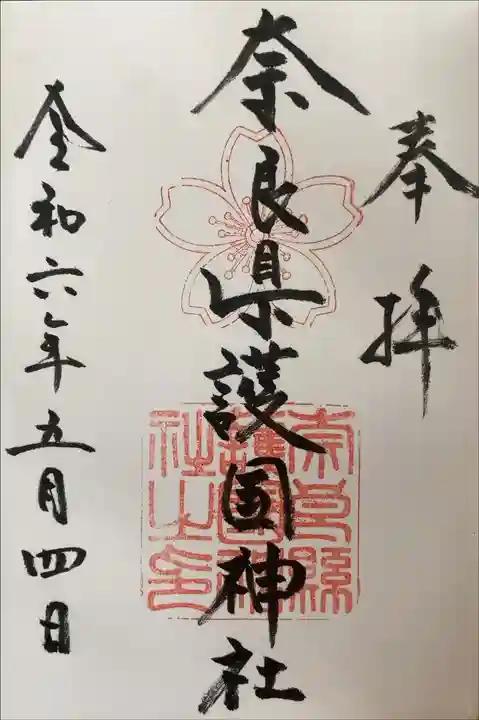 奉拝
奈良県護国神社
奈良縣護國神社之印
令和六年五月四日